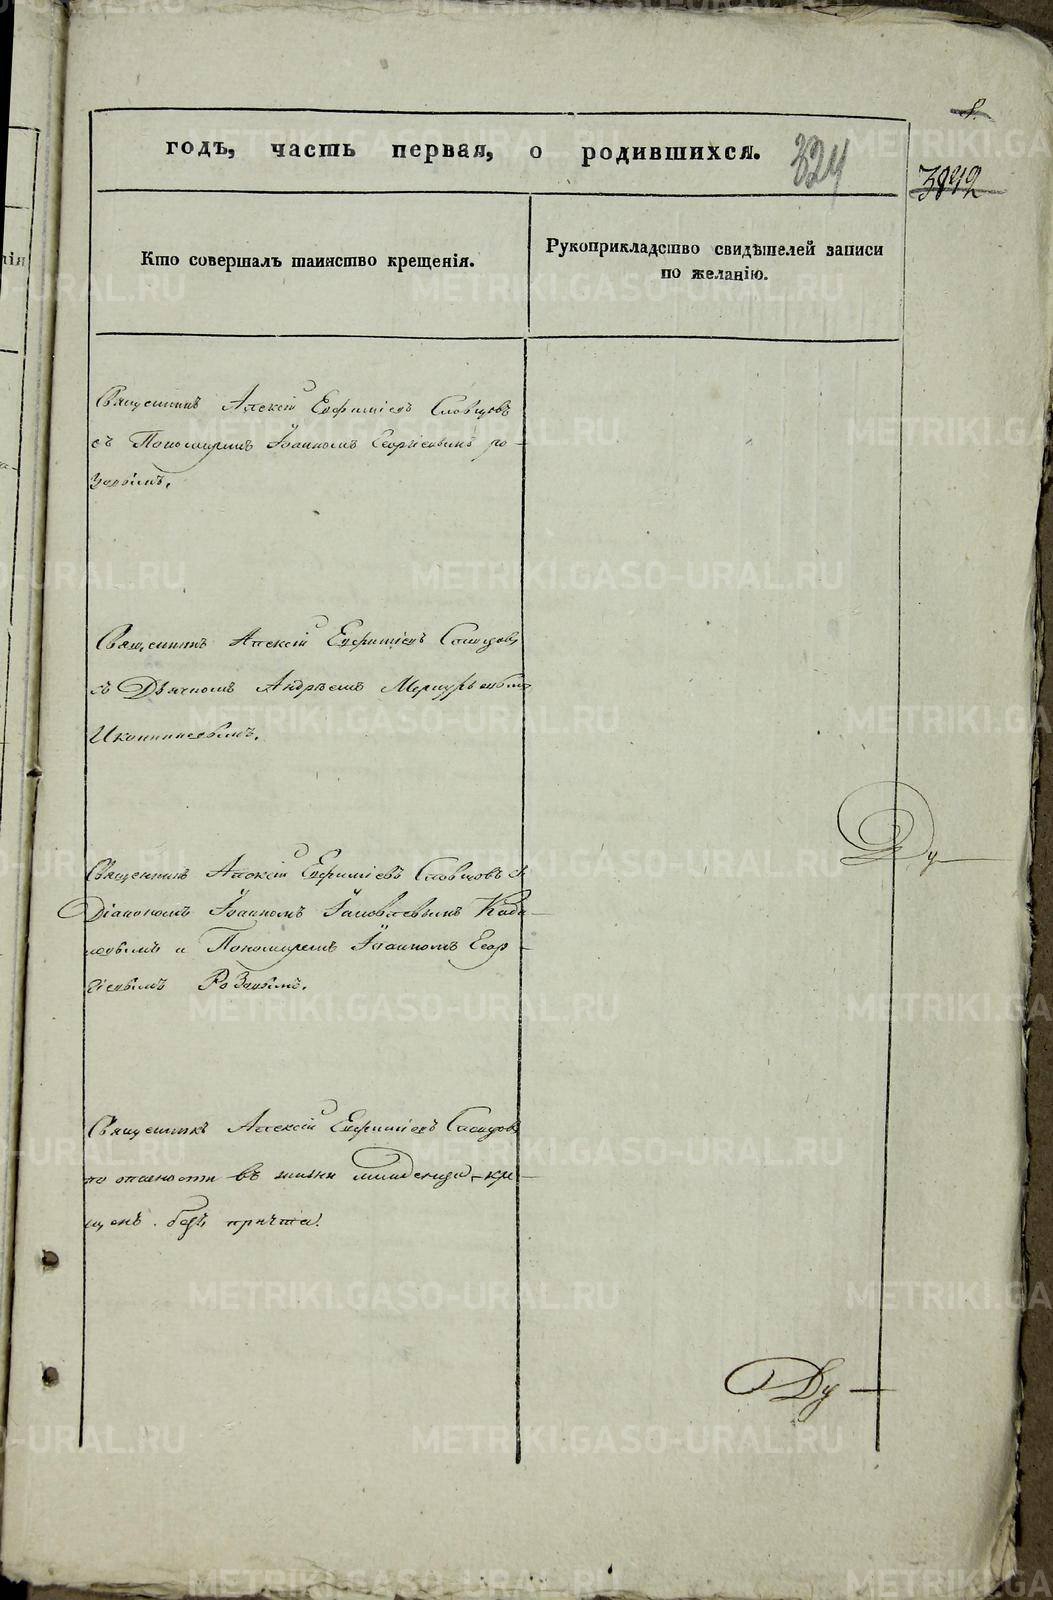 8.
годъ, часть первая, о родившихся. 324
3042
Кто совершалъ таинство крещенія.
Рукоприкладство свидѣтелей записи
по желанію.
Священникъ Алексій Евфиміевъ Словцовъ
съ Пономаремъ Іоанномъ Георгіевымъ Ро-
зовымъ.
Священникъ Алексій Евфиміевъ Словцовъ
съ Дьячкомъ Андреемъ Меркурьевымъ
Священникъ Алексій Евфиміевъ Словцовъ съ
Діакономъ Іоанномъ Іаковлевымъ
и Пономаремъ Іоанномъ Геор-
гіевымъ Розовымъ.
Священникъ Алексій Евфиміевъ Словцовъ
по опасности въ жизни младенца кре-
щенъ безъ причта.
Ду
Ду
METRIKI.GASO-URAL.RU